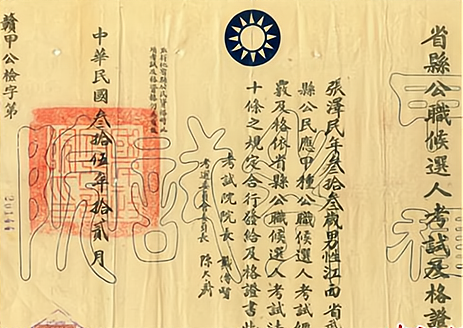 省縣公職候選人考試及格證
張澤民年叁拾叁歲男性江西省武
縣公民應甲種公職候選人考試經
覈及格依省縣公職候選人考試法
十條之規定合行發給及格證書此
考試院院長 戴傳賢
考選委員會委員長 陳大齊
中華民國叁拾伍年拾貳月
贛甲公檢字第
20144